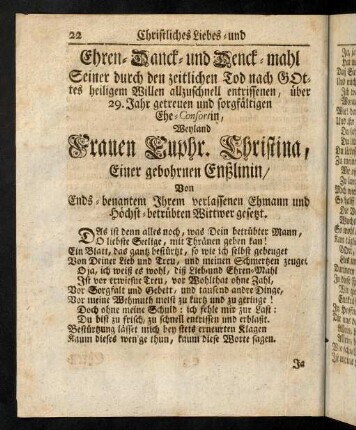 22 Christliches Liebes- und
Ehren-Danck- und Denck-mahl
Seiner durch den zeitlichen Tod nach GOt-
tes heiligem Willen allzuschnell entrissenen, über
29. Jahr getreuen und sorgfältigen
Ehe-Consortin,
Weyland
Frauen Euphr. Christina,
Einer gebohrnen Enßlinin/
Von
Ends-benantem Ihrem verlassenen Ehmann und
Höchst-betrübten Wittwer gesetzt.
DAs ist denn alles noch, was Dein betrübter Mann,
O liebste Seelige, mit Thränen geben kan!
Ein Blatt, das gantz bestürtzt, so wie ich selbst gebeuget
Von Deiner Lieb und Treu, und meinen Schmertzen zeuget.
O ja, ich weiß es wohl, diß Lieb-und Ehren-Mahl
Ist vor erwiesne Treu, vor Wohlthat ohne Zahl,
Vor Sorgfalt und Gebett, und tausend andre Dinge,
Vor meine Wehmuth meist zu kurtz und zu geringe!
Doch ohne meine Schuld: ich fehle mir zur Last:
Du bist zu frisch, zu schnell entrissen und erblaßt.
Bestürtzung lässet mich bey stets erneurten Klagen
Kaum dieses wen'ge thun, kaum diese Worte sagen.
Ja